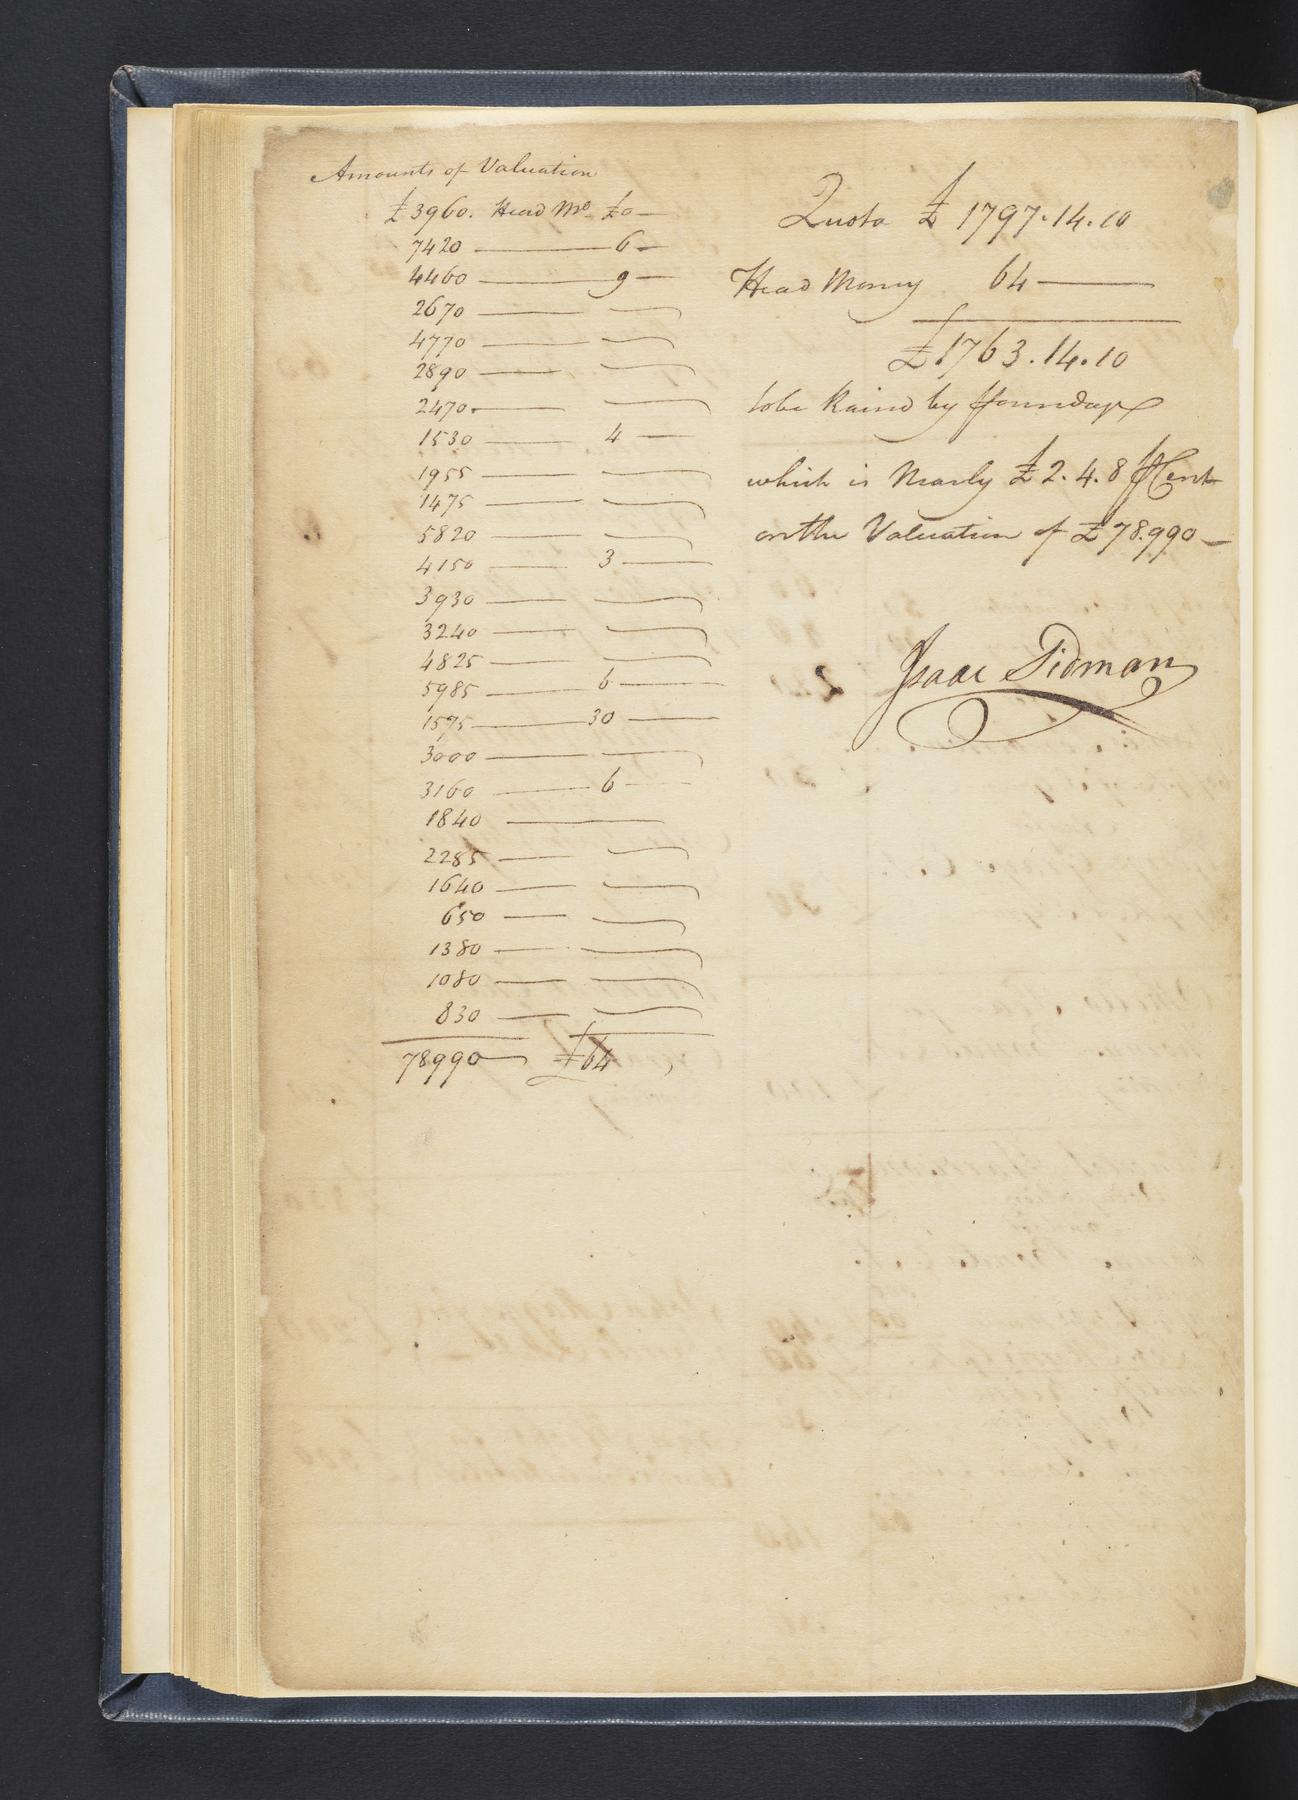 Amounts of Valuation
£3960. Head Mo. £0—
7420 — 6—
4460 — 9—
2670 — —
4770 — —
2890 — —
2470. — —
1530 — 4 —
1955 — —
1475 — —
5820 — —
4150 — 3 —
3930 — —
3240 — —
4825 — —
5985 — 6 —
1575 — 30 —
3000 — —
3160 — 6 —
1840 — —
2285 — —
1640 — —
650 — —
1380 — —
1080 — —
830 — —
78990— £64
Quota £ 1797.14.10
Head Money 64 —
£1763.14.10
to be Raisd by
which is Nearly £2.4.8 Cent
on the Valuation of £78.990—
Isaac Tidman